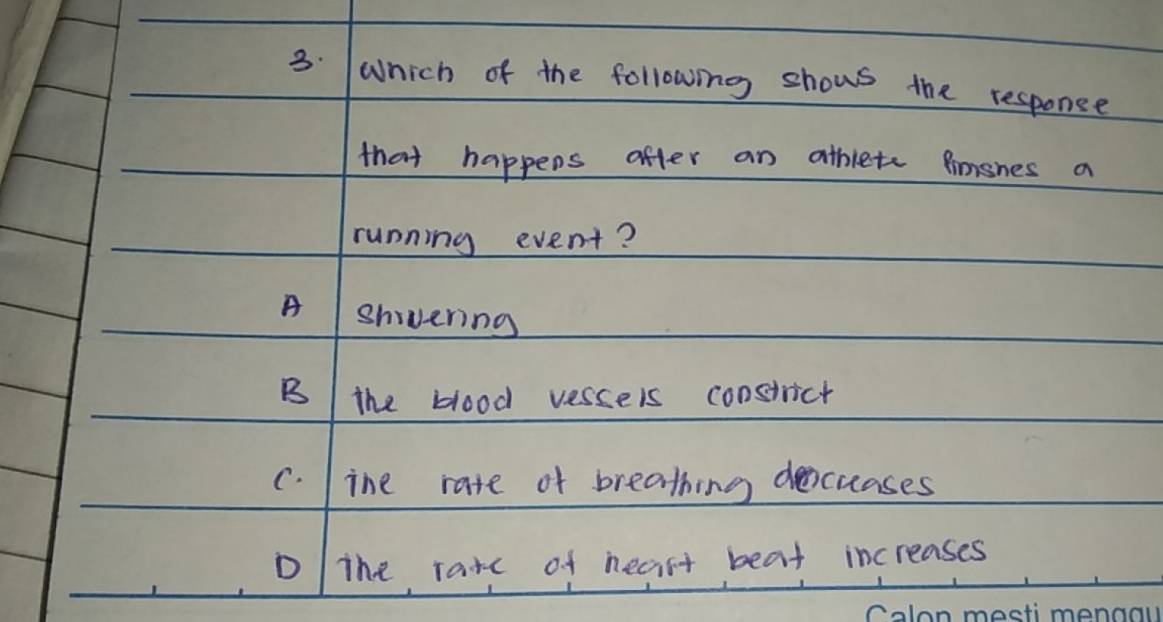 3. Which of the following shows the response
that happens after an athlete finishes a
running event?
A shivering
B the blood vessels constrict
C. The rate of breathing decreases
D The rate of heart beat increases
Calon mesti menggu